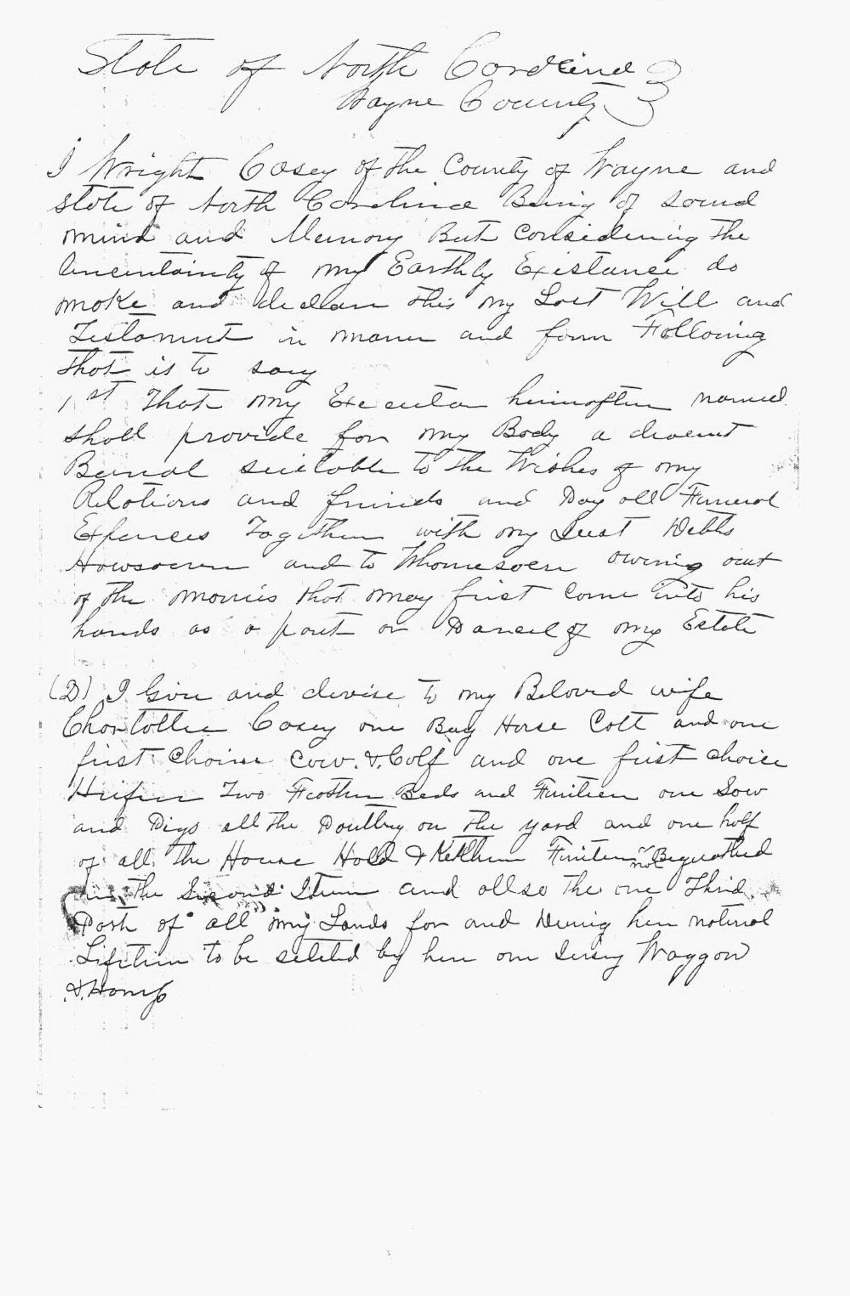 State of North Carolina }
Wayne County }
I Wright Casey of the County of Wayne and
State of North Carolina Being of sound
mind and Memory But Considering the
Uncertainty of my Earthly Existance do
make and declare this my Last Will and
Testament in maner and form Following
that is to say
1st That my Executor hereinafter named
shall provide for my Body a decent
Burial suitable to the Wishes of my
Relations and friends and Pay all Funeral
Expences Together with my Just Debts
Howsoever and to Whomesoever owing out
of the monies that may first Come into his
hands as a part or Parcel of my Estate
(2) I Give and devise to my Beloved wife
Charlottie Casey one Bay Horse Colt and one
first Choice Cow & Calf and one first choice
Heifer Two Feather Beds and Furniture one Sow
and Pigs all the Poultry on the yard and one half
of all the House Hold & Kitchen Furniture not Bequethed
in the Second Item and allso the one Third
Part of all my Lands for and During her natural
Lifetime to be seleted by her one Jersey Waggon
& Harnis